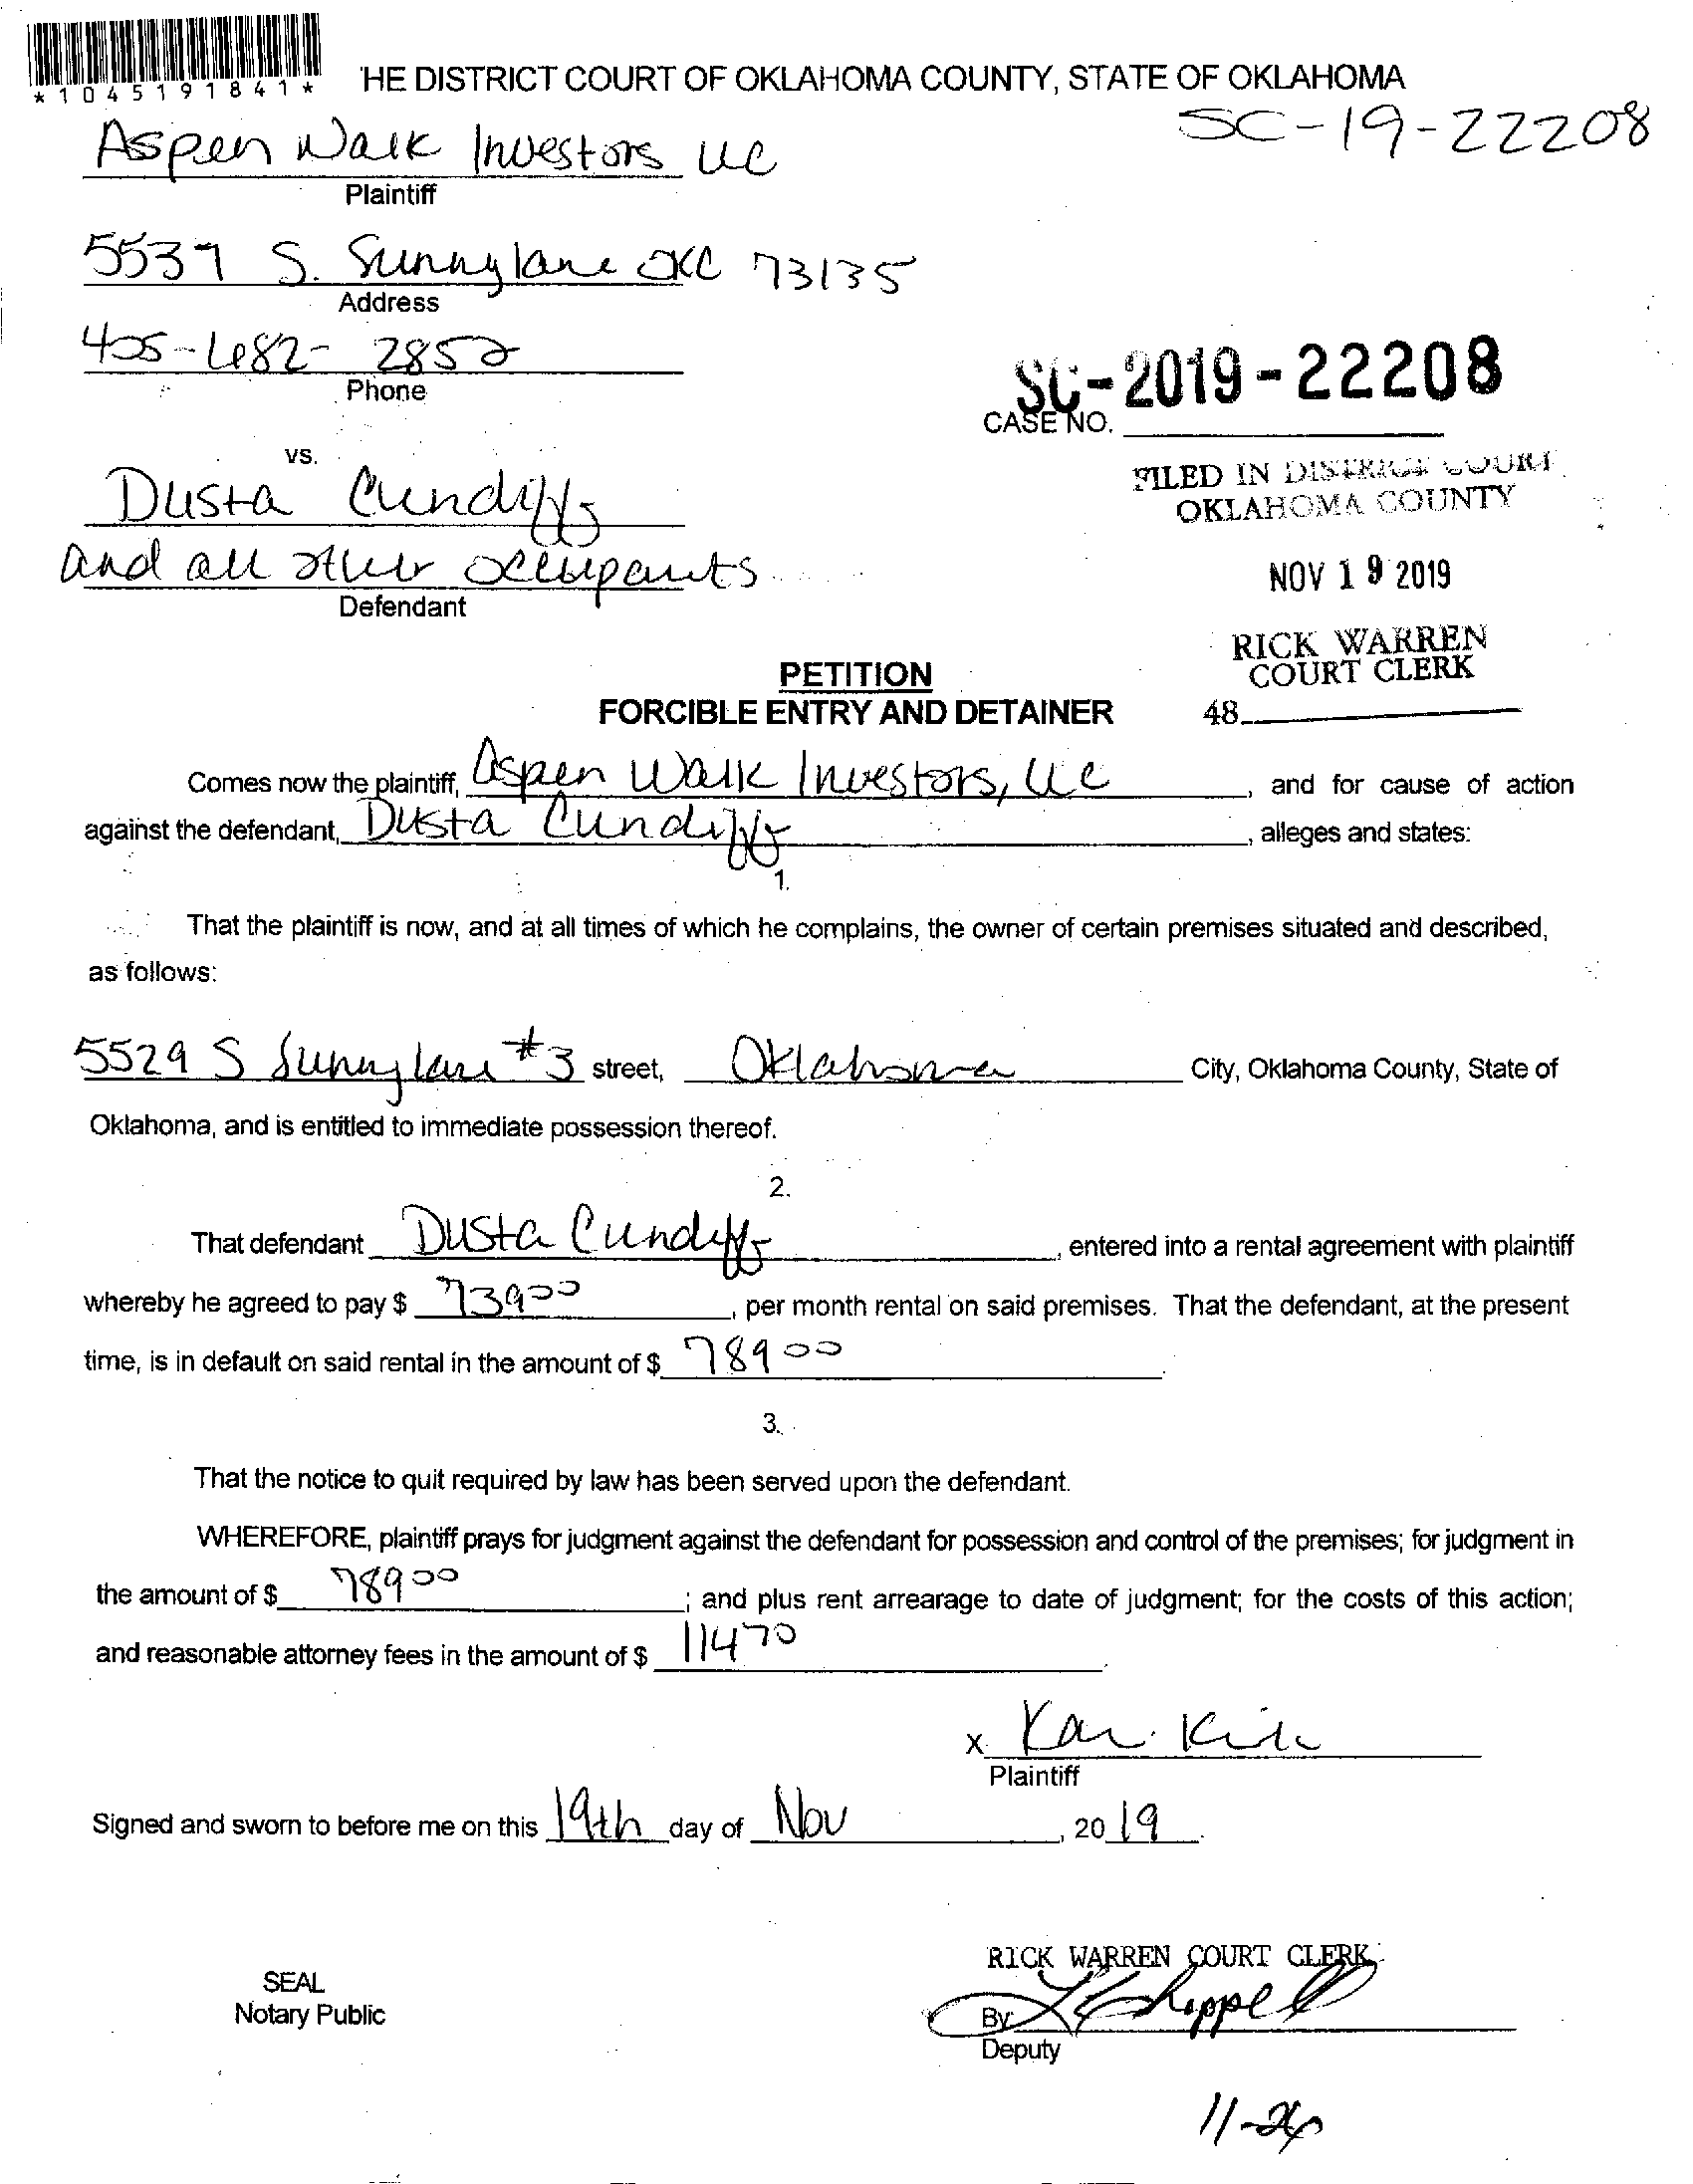 *1045191841*
'HE DISTRICT COURT OF OKLAHOMA COUNTY, STATE OF OKLAHOMA
SC-19-22208
Aspen Walk Investors LLC
Plaintiff
5537 S. Sunnylane OKC 73135
Address
405-682-2852
Phone
SC-2019-22208
CASE NO.
vs.
FILED IN DISTRICT COURT
OKLAHOMA COUNTY
Dusta Cundiff
and all other occupants
NOV 19 2019
Defendant
RICK WARREN
COURT CLERK
PETITION
FORCIBLE ENTRY AND DETAINER
48
Comes now the plaintiff, Aspen Walk Investors, LLC, and for cause of action
against the defendant, Dusta Cundiff, alleges and states:
1.
That the plaintiff is now, and at all times of which he complains, the owner of certain premises situated and described,
as follows:
5529 S Sunnylane #3 street, Oklahoma City, Oklahoma County, State of
Oklahoma, and is entitled to immediate possession thereof.
2.
That defendant Dusta Cundiff, entered into a rental agreement with plaintiff
whereby he agreed to pay $ 739 00, per month rental on said premises. That the defendant, at the present
time, is in default on said rental in the amount of $ 789 00.
3.
That the notice to quit required by law has been served upon the defendant.
WHEREFORE, plaintiff prays for judgment against the defendant for possession and control of the premises; for judgment in
the amount of $ 789 00; and plus rent arrearage to date of judgment; for the costs of this action;
and reasonable attorney fees in the amount of $ 114 70.
x
Plaintiff
Signed and sworn to before me on this 19th day of Nov, 2019.
RICK WARREN COURT CLERK
SEAL
Notary Public
By
Deputy
11-26